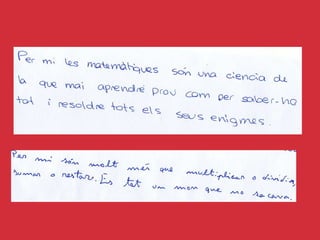 Per mi les matemàtiques són una ciencia de
la que mai aprendré prou com per saber-ho
tot i resoldre tots els seus enigmes.
Per mi són molt més que multiplicar o dividir,
sumar o restar. Es tot un mon que no s'acava.